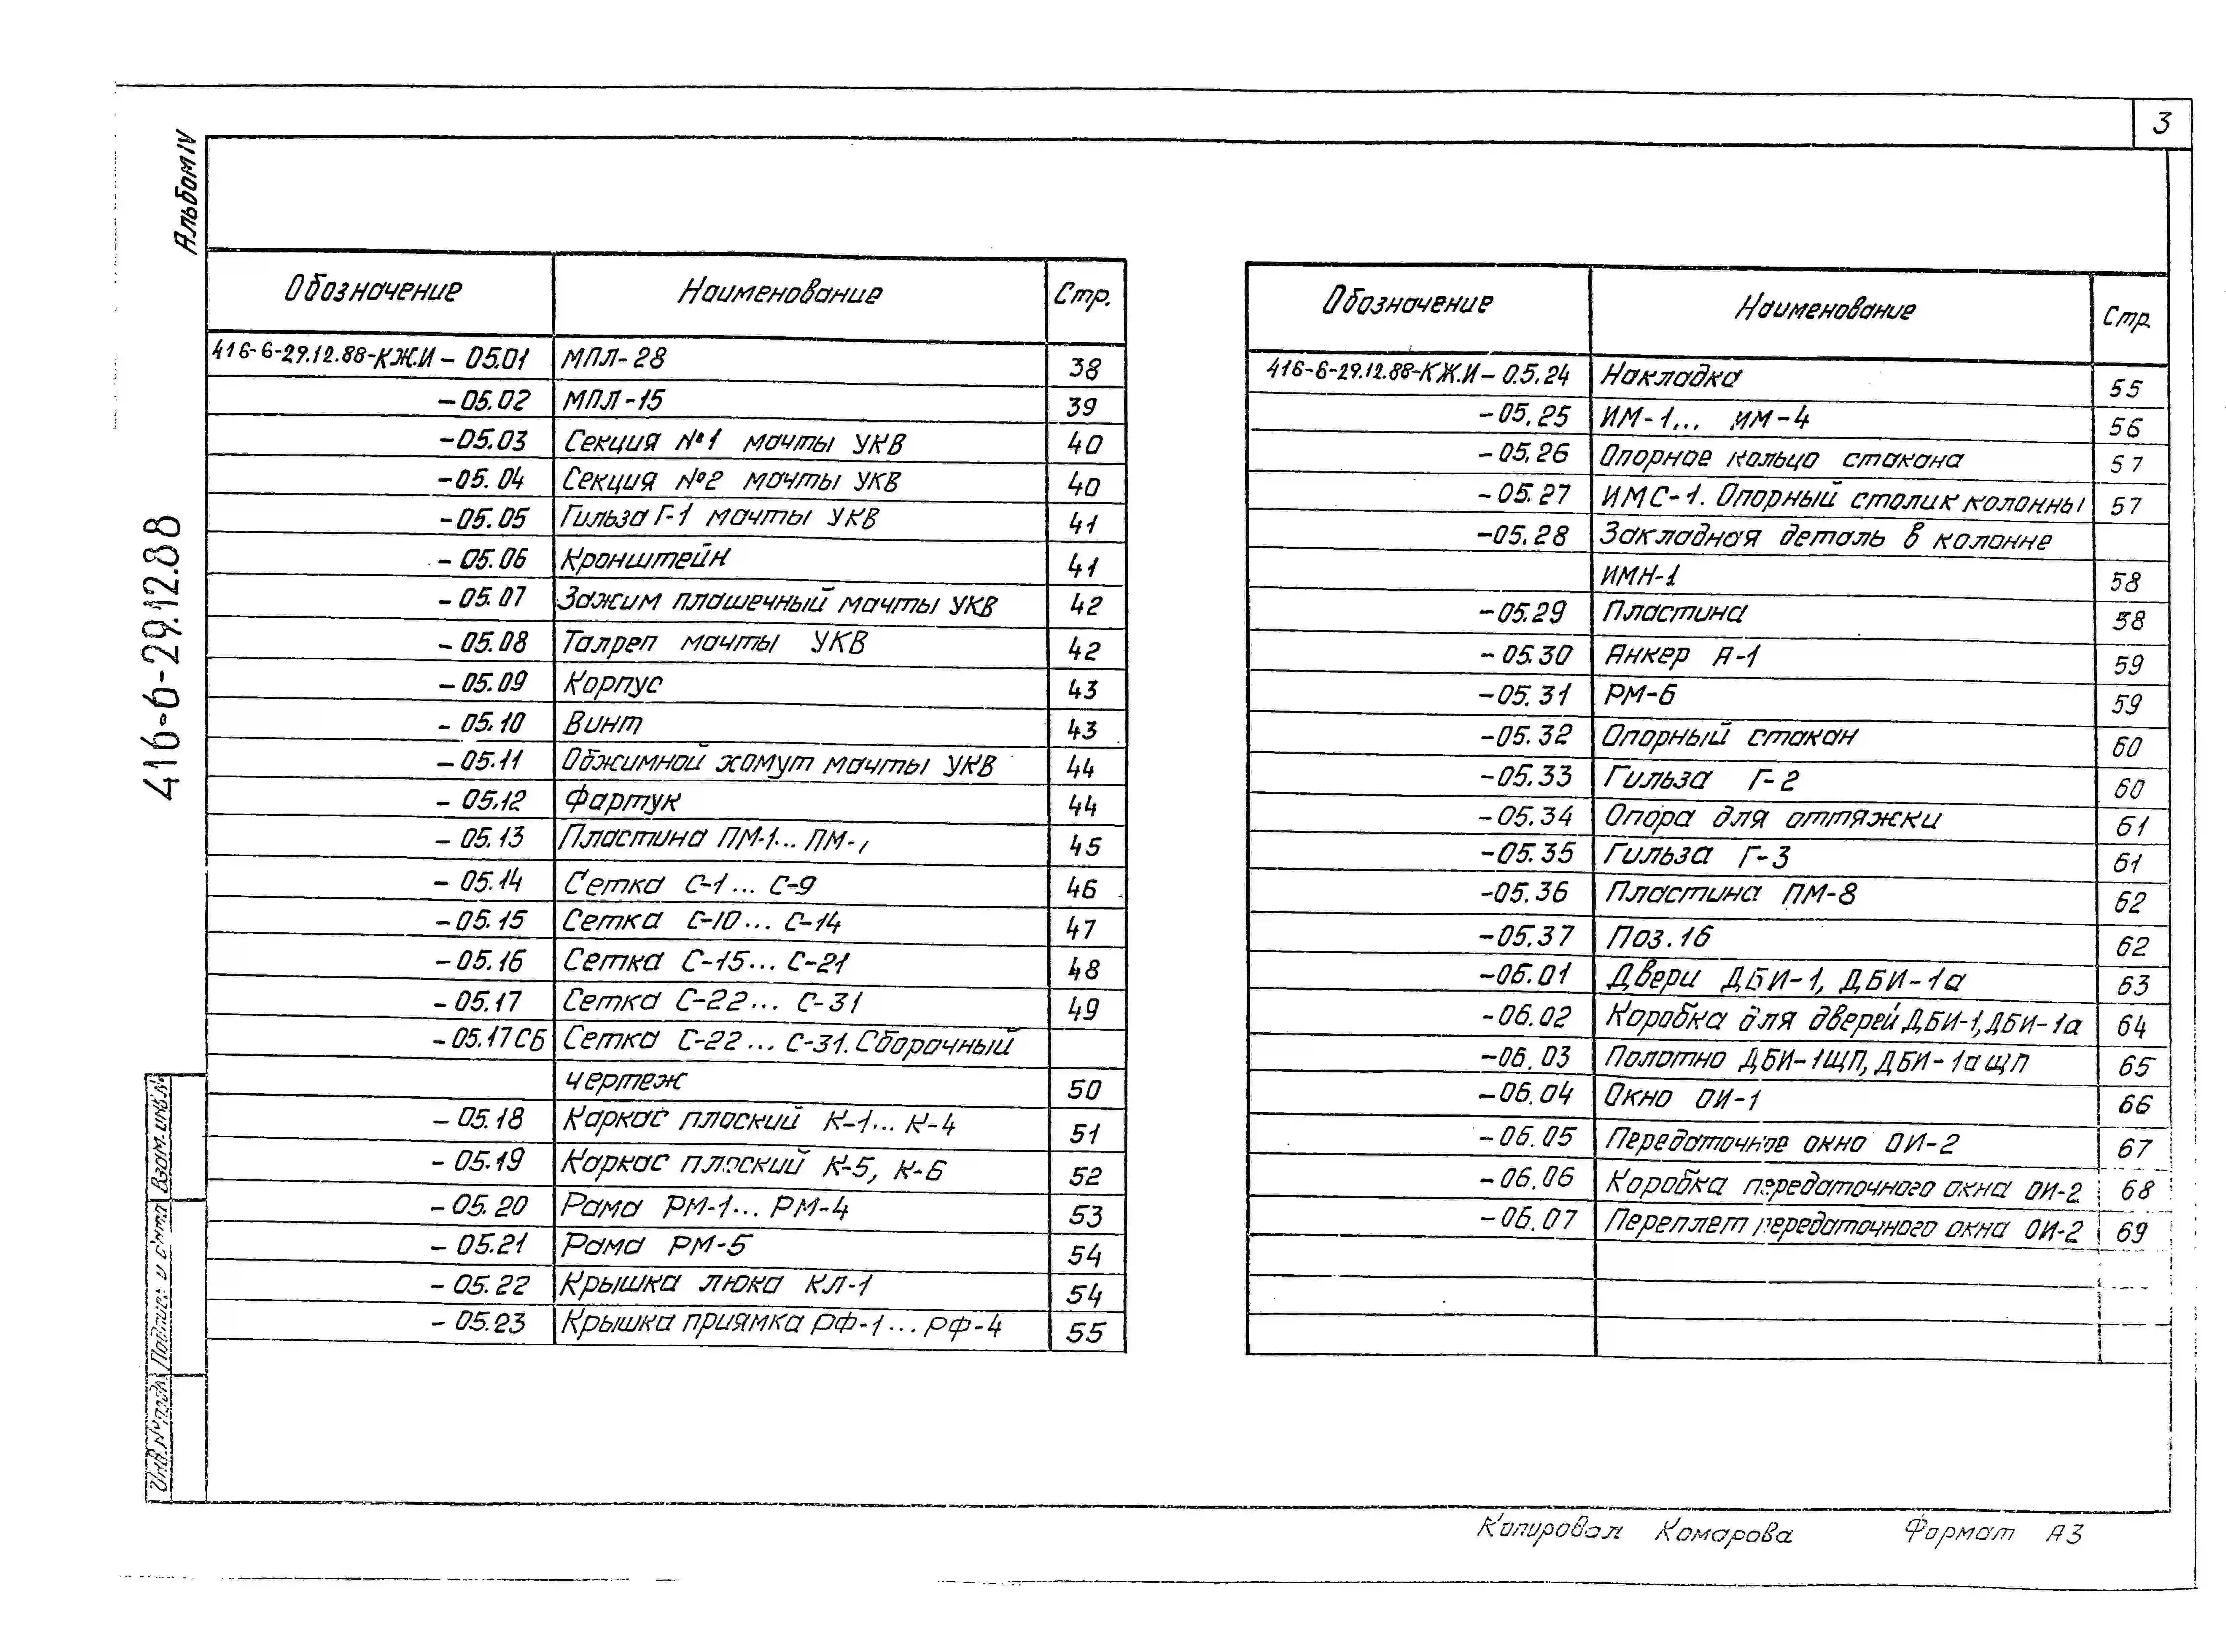 3
Альбом IV
416-6-29.12.88
Обозначение Наименование Стр.
416-6-29.12.88-КЖ.И - 05.01 МПЛ-28 38
-05.02 МПЛ-15 39
-05.03 Секция №1 мачты УКВ 40
-05.04 Секция №2 мачты УКВ 40
-05.05 Гильза Г-1 мачты УКВ 41
-05.06 Кронштейн 41
-05.07 Зажим плашечный мачты УКВ 42
-05.08 Талреп мачты УКВ 42
-05.09 Корпус 43
-05.10 Винт 43
-05.11 Обжимной хомут мачты УКВ 44
-05.12 Фартук 44
-05.13 Пластина ПМ-1... ПМ- 45
-05.14 Сетка С-1... С-9 46
-05.15 Сетка С-10... С-14 47
-05.16 Сетка С-15... С-21 48
-05.17 Сетка С-22... С-31 49
-05.17СБ Сетка С-22... С-31. Сборочный
чертеж 50
-05.18 Каркас плоский К-1... К-4 51
-05.19 Каркас плоский К-5, К-6 52
-05.20 Рама РМ-1... РМ-4 53
-05.21 Рама РМ-5 54
-05.22 Крышка люка КЛ-1 54
-05.23 Крышка приямка РФ-1... РФ-4 55
Обозначение Наименование Стр.
416-6-29.12.88-КЖ.И - 0.5.24 Накладка 55
-05.25 ИМ-1... ИМ-4 56
-05.26 Опорное кольцо стакана 57
-05.27 ИМС-1. Опорный столик колонны 57
-05.28 Закладная деталь в колонне
ИМН-1 58
-05.29 Пластина 58
-05.30 Анкер А-1 59
-05.31 РМ-6 59
-05.32 Опорный стакан 60
-05.33 Гильза Г-2 60
-05.34 Опора для оттяжки 61
-05.35 Гильза Г-3 61
-05.36 Пластина ПМ-8 62
-05.37 Поз.16 62
-06.01 Двери ДБИ-1, ДБИ-1а 63
-06.02 Коробка для дверей ДБИ-1, ДБИ-1а 64
-06.03 Полотно ДБИ-1ЩП, ДБИ-1аЩП 65
-06.04 Окно ОИ-1 66
-06.05 Передаточное окно ОИ-2 67
-06.06 Коробка передаточного окна ОИ-2 68
-06.07 Переплет передаточного окна ОИ-2 69
Взам. инв.№
Подпись и дата
Инв.№ подл.
Копировал Комарова Формат А3